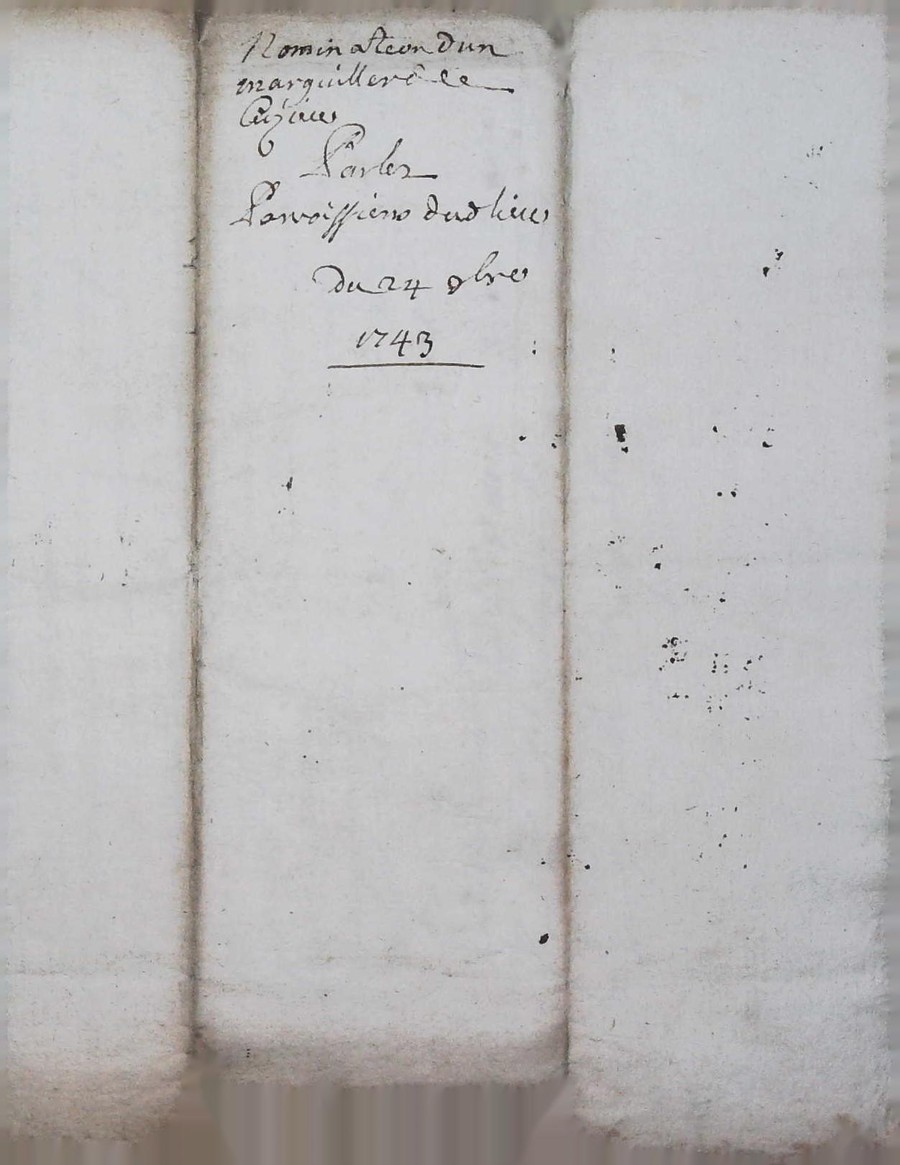 Nomination dun
marguillier de
Cuzieu
Par les
Paroissiens dud lieu
Du 24 bre
1743